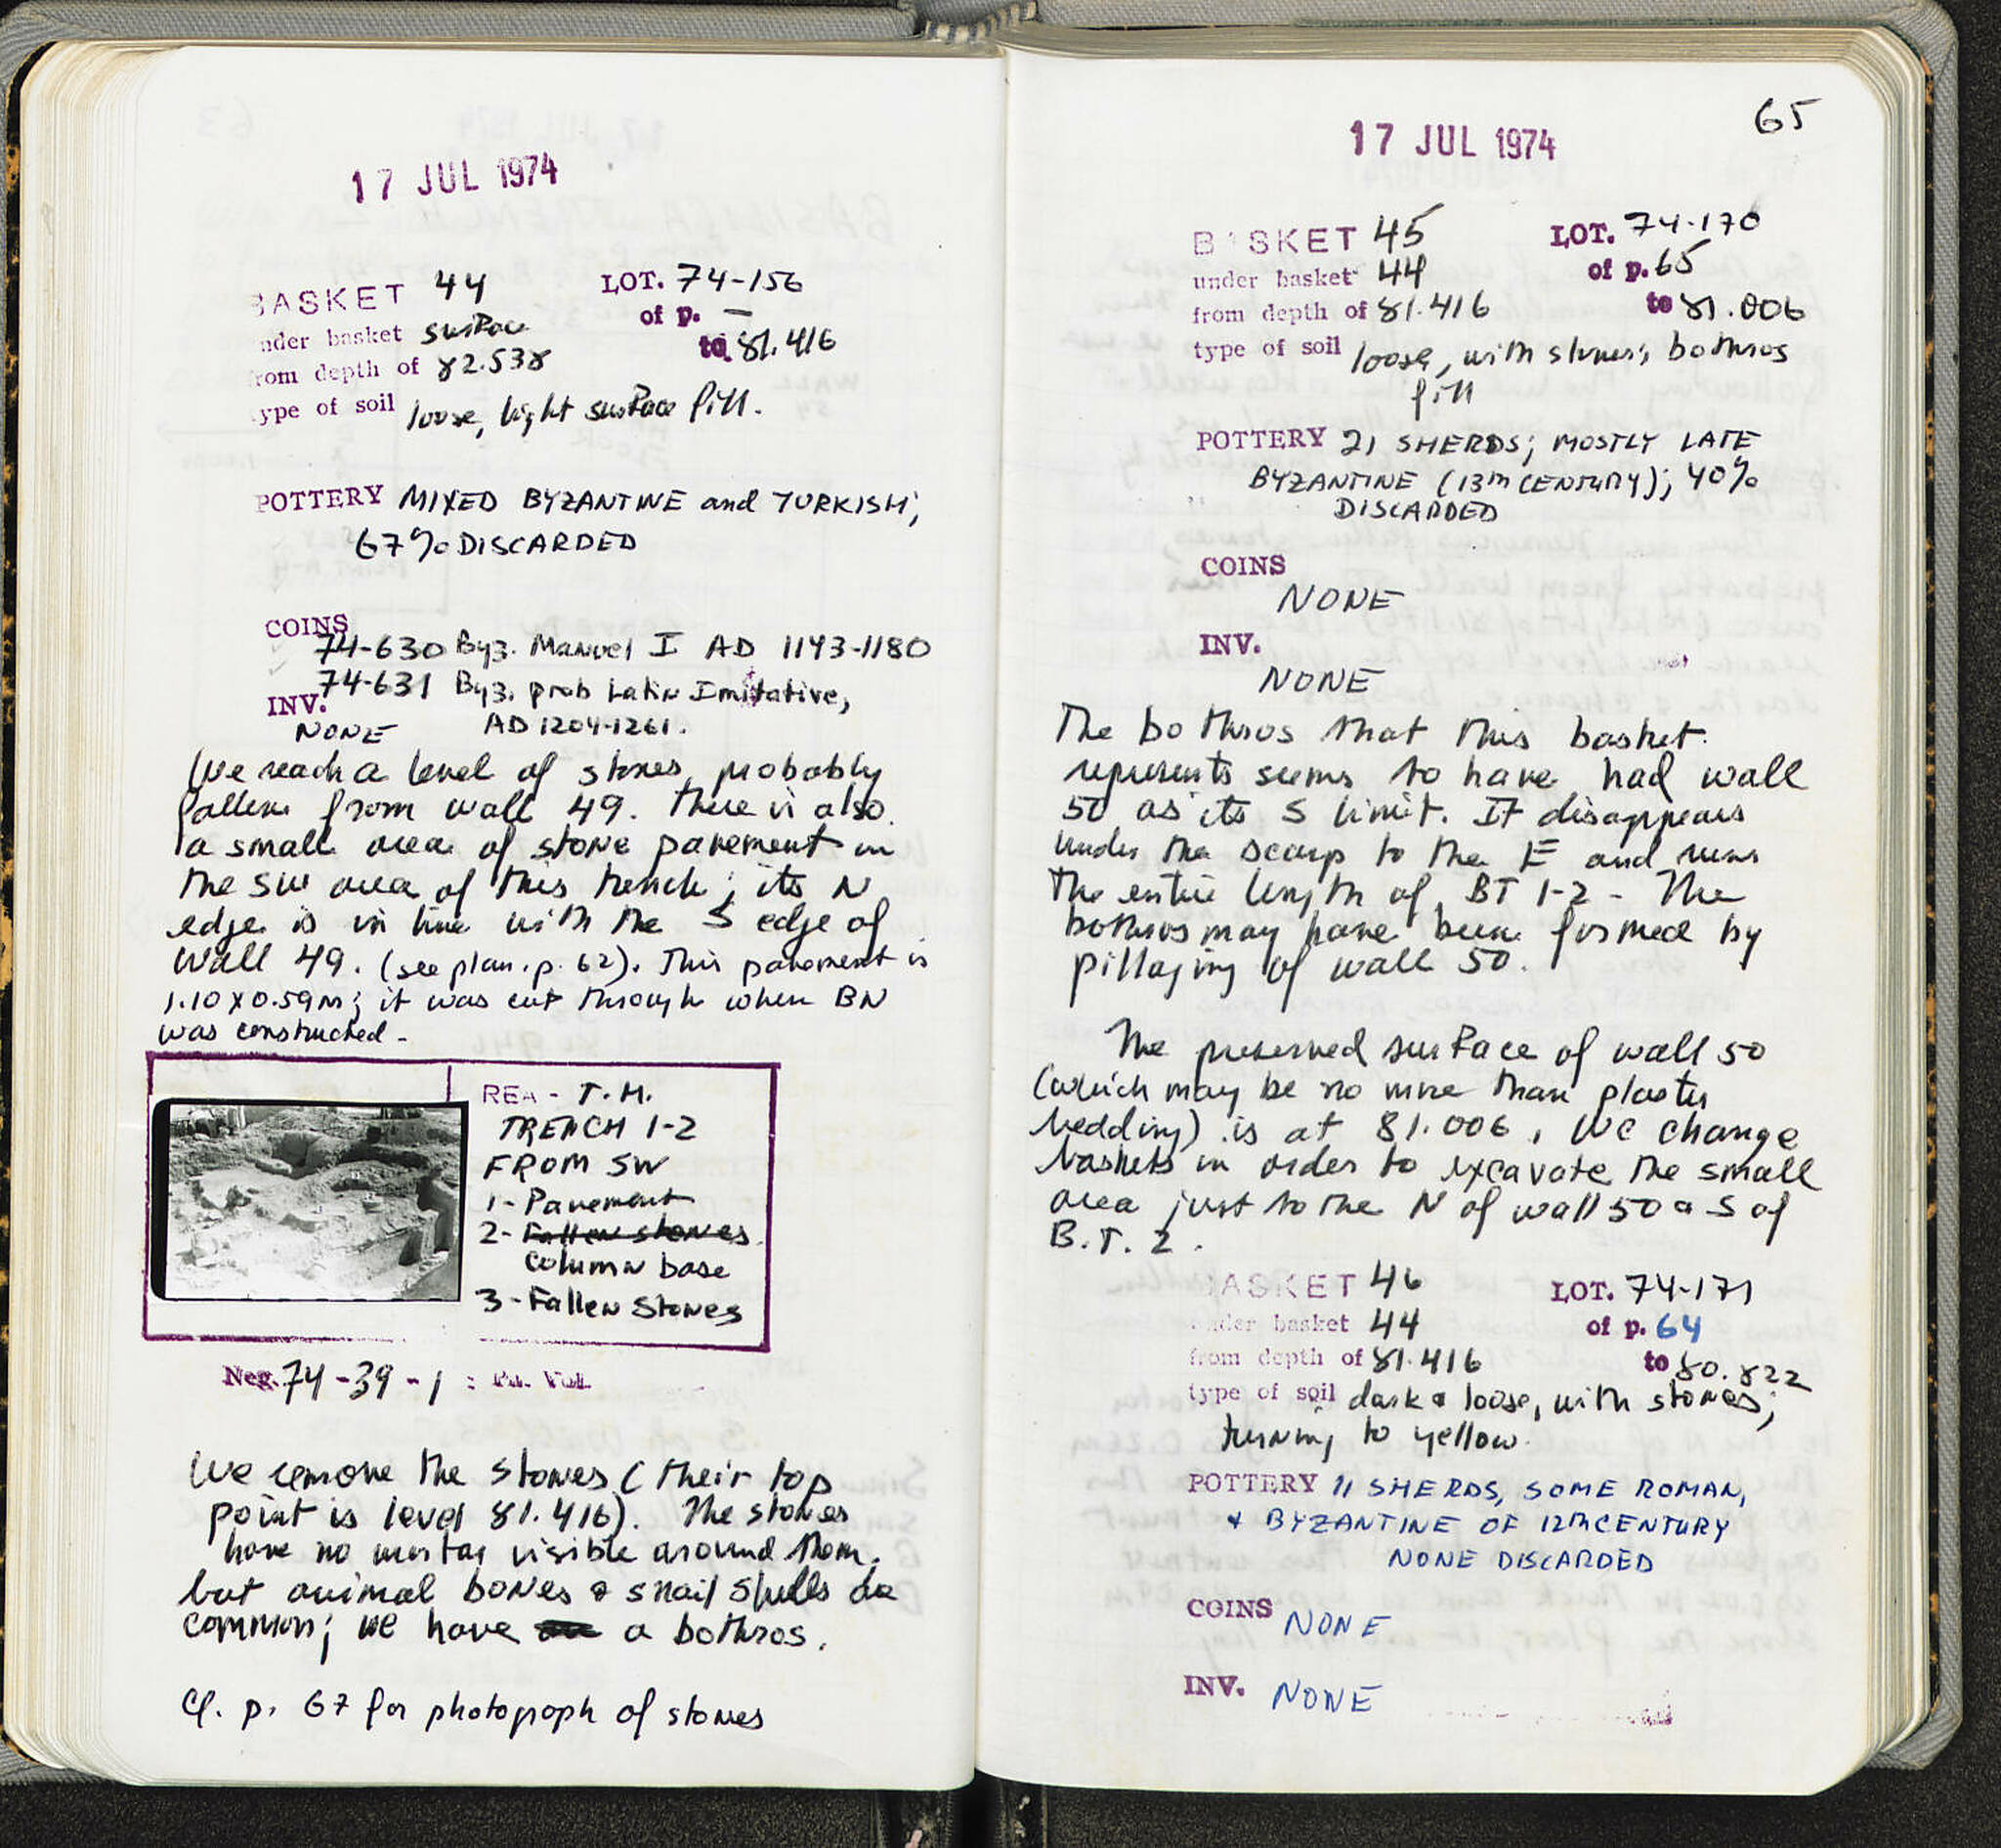 17 JUL 1974
BASKET 44 LOT. 74-156
under basket surface of p. —
from depth of 82.538 to 81.416
type of soil loose, light surface fill.
POTTERY MIXED BYZANTINE and TURKISH;
67% DISCARDED
COINS
74-630 Byz. Manuel I AD 1143-1180
74-631 Byz. prob Latin Imitative,
INV.
NONE AD 1204-1261.
We reach a level of stones, probably
fallen from wall 49. There is also
a small area of stone pavement in
the SW area of this trench; its N
edge is in line with the S edge of
Wall 49. (see plan, p. 62). This pavement is
1.10 x 0.59m; it was cut through when BN
was constructed -
REA - T.M.
TRENCH 1-2
FROM SW
1- Pavement
2- Fallen stones
column base
3- Fallen Stones
Neg. 74-39-1 :
We remove the stones (their top
point is level 81.416). The stones
have no mortar visible around them.
but animal bones & snail shells are
common; we have a bothros.
Cf. p. 67 for photograph of stones
65
17 JUL 1974
BASKET 45 LOT. 74-170
under basket 44 of p. 65
from depth of 81.416 to 81.006
type of soil loose, with stones; bothros
fill
POTTERY 21 SHERDS; MOSTLY LATE
BYZANTINE (13th CENTURY); 40%
DISCARDED
COINS
NONE
INV.
NONE
The bothros that this basket
represents seems to have had wall
50 as its S limit. It disappears
under the scarp to the E and runs
the entire length of BT 1-2 - The
bothros may have been formed by
pillaging of wall 50.
The preserved surface of wall 50
(which may be no more than plaster
bedding) is at 81.006. We change
baskets in order to excavate the small
area just to the N of wall 50 & S of
B.T. 2.
BASKET 46 LOT. 74-171
under basket 44 of p. 64
from depth of 81.416 to 80.822
type of soil dark & loose, with stones;
turning to yellow.
POTTERY 11 SHERDS, SOME ROMAN,
& BYZANTINE OF 12th CENTURY
NONE DISCARDED
COINS NONE
INV. NONE